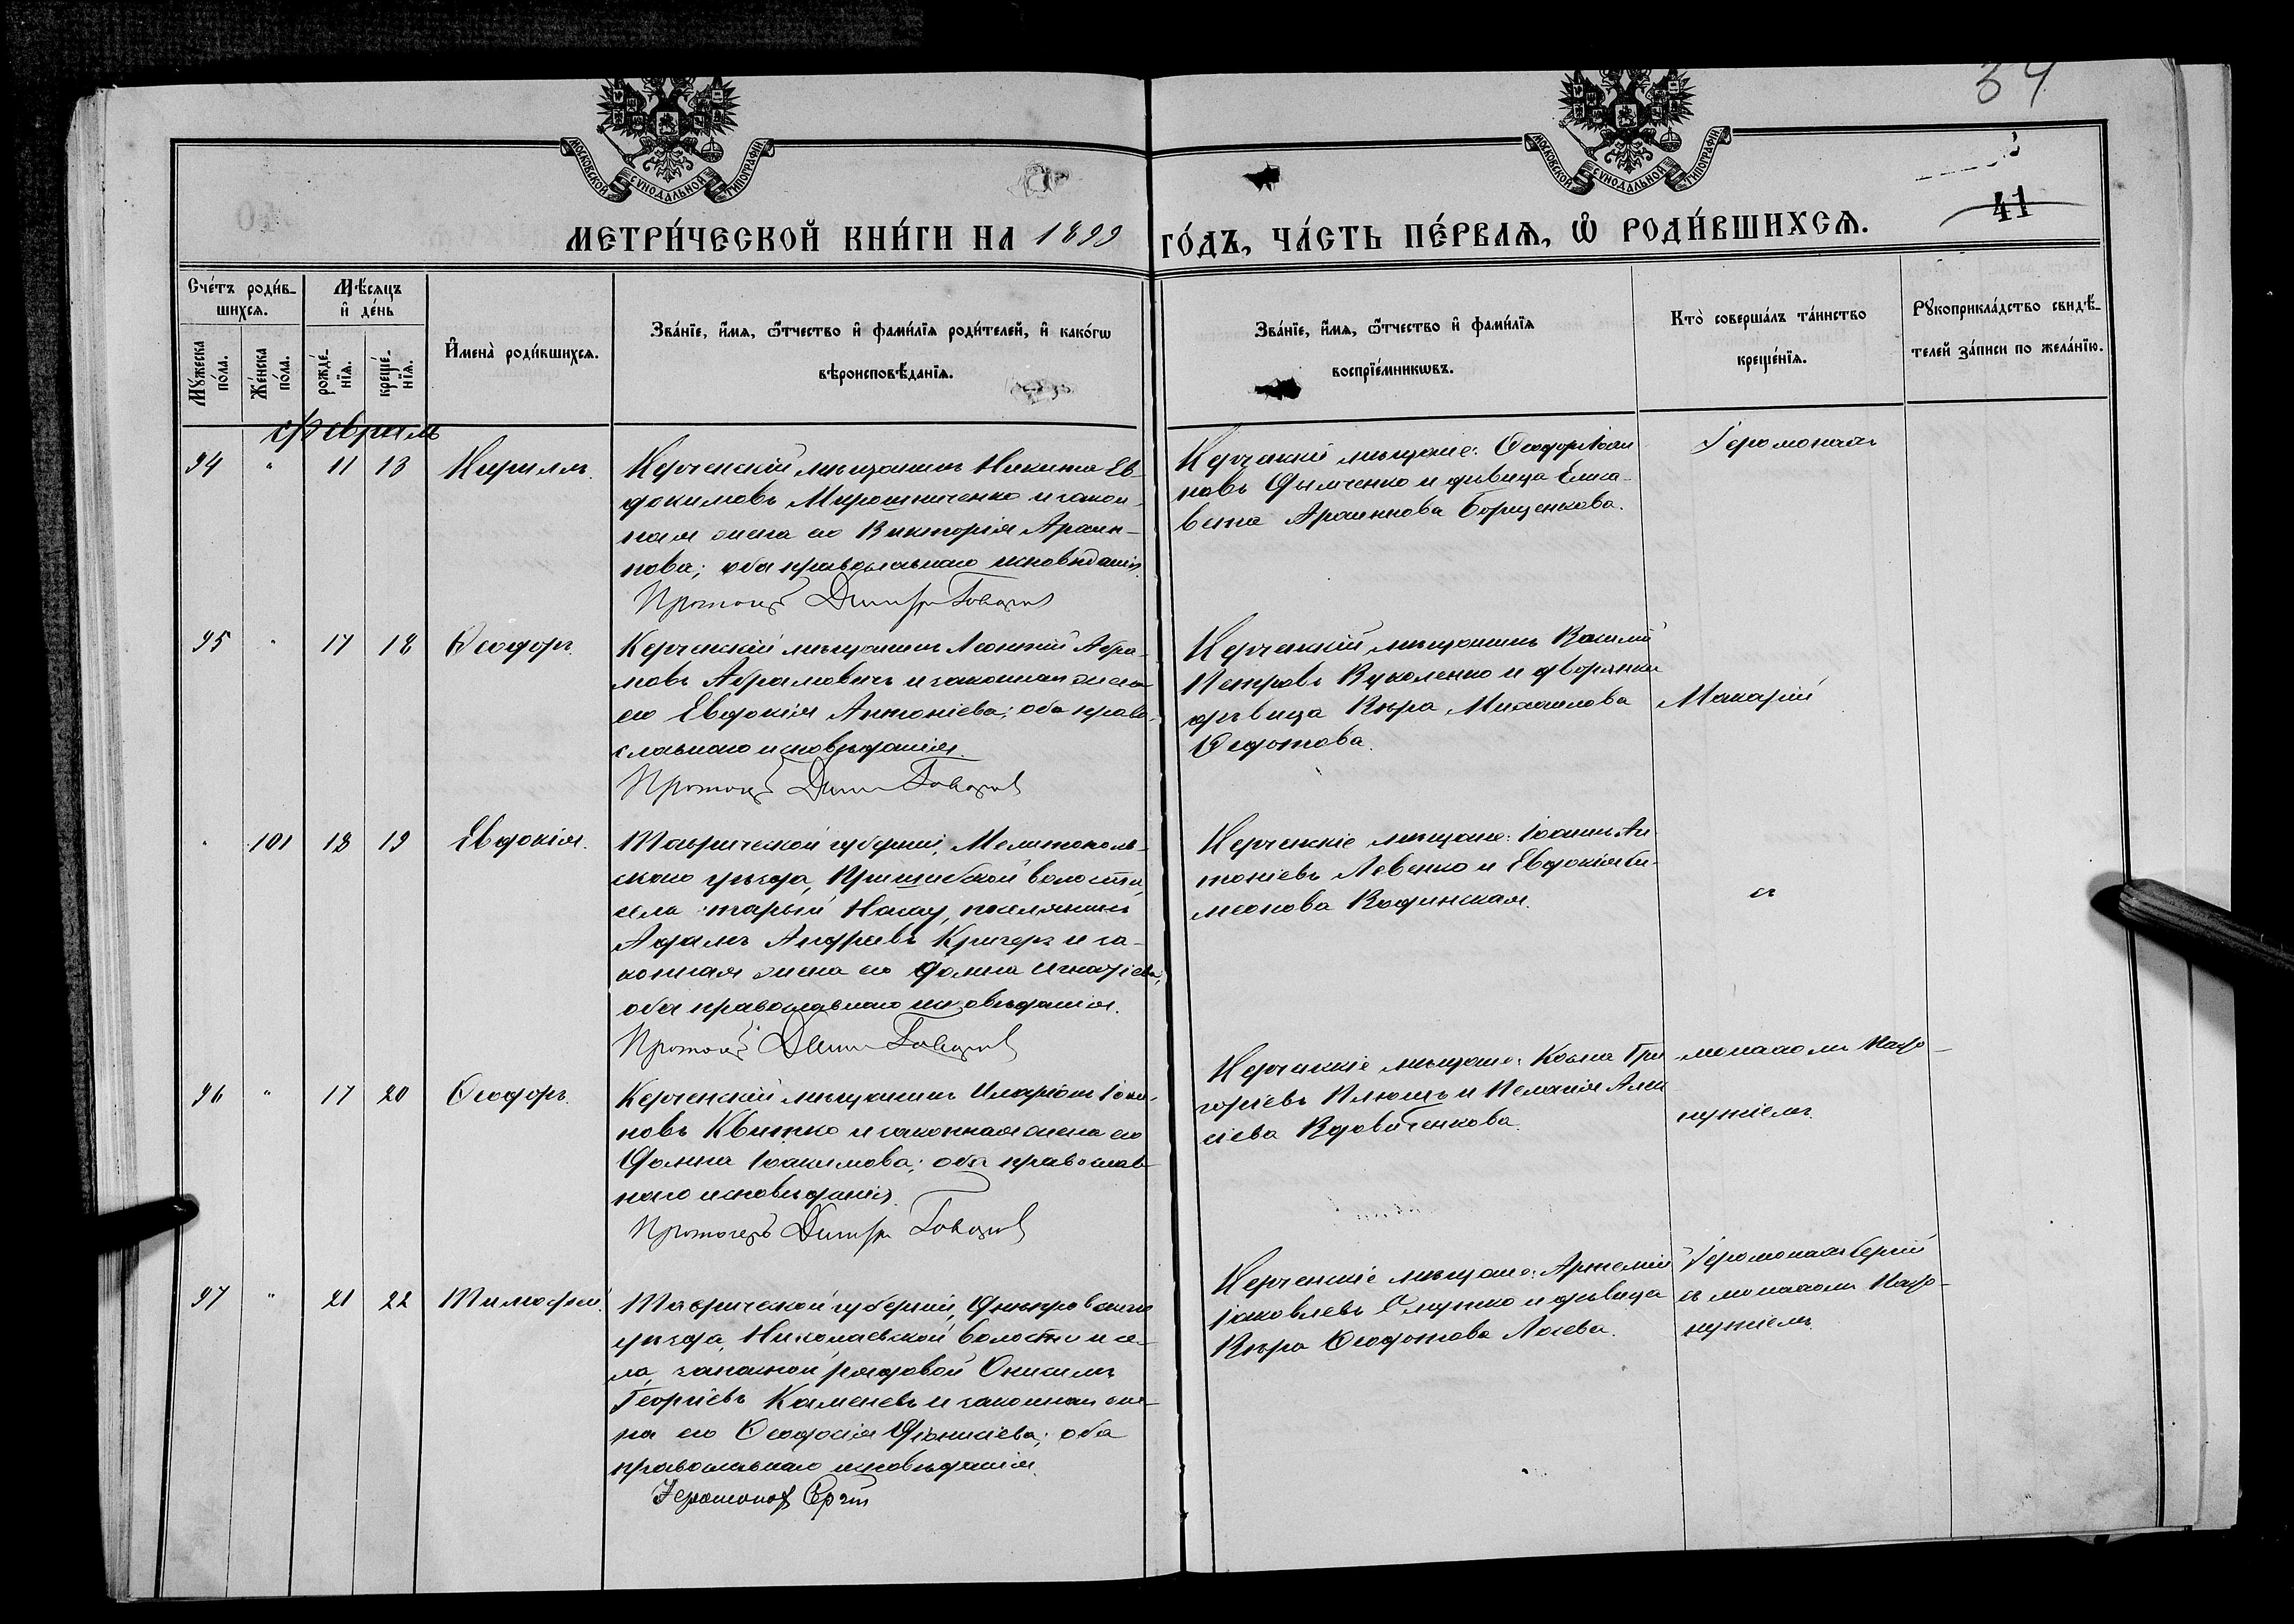 34
41
МОСКОВСКОЙ СУНОДАЛЬНОЙ ТИПОГРАФІИ
МОСКОВСКОЙ СУНОДАЛЬНОЙ ТИПОГРАФІИ
МЕТРИ́ЧЕСКОЙ КНИ́ГИ НА 1899 ГО́ДЪ, ЧА́СТЬ ПЕ́РВАѦ, Ѡ РОДИ́ВШИХСѦ.
Сче́тъ роди́в-
шихсѧ.
Мꙋ́жеска по́ла.
Же́нска по́ла.
Мѣ́сѧцъ
и҆ де́нь
рожде́-
нїѧ.
креще́-
нїѧ.
И҆мена̀ роди́вшихсѧ.
Зва́нїе, и҆́мѧ, ѻ҆́тчество и҆ фами́лїѧ роди́телей, и҆ како́гѡ
вѣроисповѣ́данїѧ.
Зва́нїе, и҆́мѧ, ѻ҆́тчество и҆ фами́лїѧ
воспрїе́мникѡвъ.
Кто̀ соверша́лъ та́инство
креще́нїѧ.
Рꙋкоприкла́дство свидѣ́-
телей за́писи по жела́нїю.
Февраль
94 " 11 13 Кириллъ.
Керченскій мѣщанинъ Никита Ев-
докимовъ Мирошниченко и закон-
ная жена его Виктория Архип-
пова; оба православнаго исповѣданія.
Протоіер Димитр
Керченскіе мѣщане: Ѳеодор Іоан
новъ Дымченко и дѣвица Елиса-
вета Архиппова Борщенкова.
Іеромонахъ
95 " 17 18 Ѳеодоръ.
Керченскій мѣщанинъ Леонтій Абра-
мовъ Абрамовичъ и законная жена
его Евдокія Антоніева; оба право-
славнаго исповѣданія.
Протоіер Дими
Керченскій мѣщанинъ Василій
Петровъ Вуколенко и дворянка
дѣвица Вѣра Михаилова
Ѳедотова.
Макарій
" 101 18 19 Евдокія.
Таврической губерніи, Мелитополь-
скаго уѣзда, Пришибской волости,
села Старый Насау, поселянинъ
Адамъ Андреевъ Кригеръ и за-
конная жена его Домна Игнатіева;
оба православнаго исповѣданія.
Протоіер Дими
Керченскіе мѣщане: Іоаннъ Ан
тоніевъ Левенко и Евдокія Си-
меонова Водинская.
съ
96 " 17 20 Ѳеодоръ.
Керченскій мѣщанинъ Иларіонъ Іоан-
новъ Квитко и законная жена его
Домна Іоакимова; оба православ-
наго исповѣданія.
Протоіерей Димитр
Керченскіе мѣщане: Косма Гри
горіевъ Плющъ и Пелагія Алек
сіева Вдовиченкова.
монахомъ Паф-
нутіемъ.
97 " 21 22 Тимофей.
Таврической губерніи, Днѣпровскаго
уѣзда, Николаевской волости и се-
ла, запасной рядовой Онисимъ
Георгіевъ Каменевъ и законная же-
на его Ѳеодосія Діонисіева; оба
православнаго исповѣданія.
Іеромонах Сергій
Керченскіе мѣщане: Артемій
Іаковлевъ и дѣвица
Вѣра Ѳеодотова Лосева.
Іеромонахъ Сергій
съ монахомъ Паф-
нутіемъ.